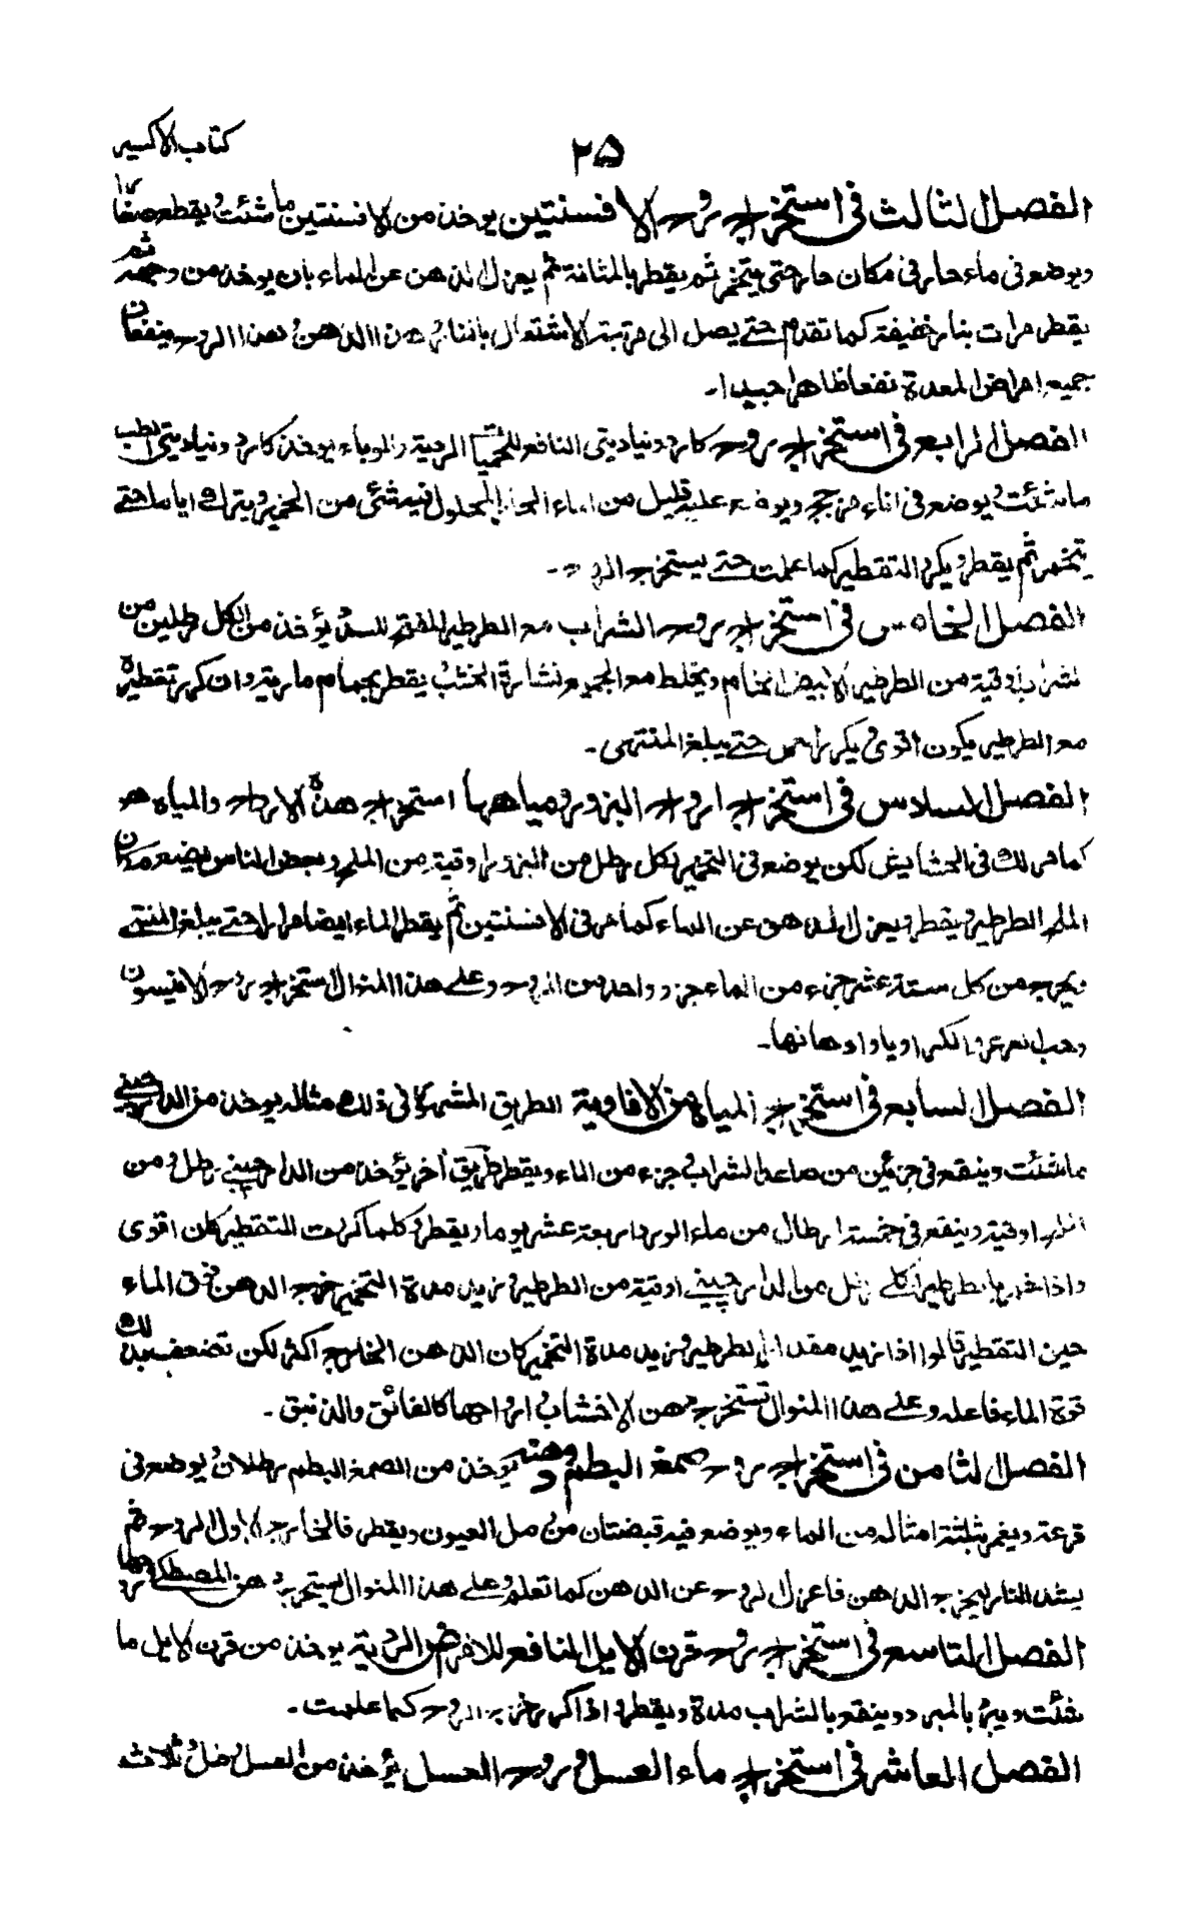 كتاب الاكسير
٢٥
الفصل الثالث فى استخراج روح الافسنتين يوخذ من الافسنتين ما شئت ويقطع صغارا
ويوضع فى ماء حار فى مكان حار حتى يتخمر ثم يقطر بالمثانة ثم يعزل الدهن عن الماء بان يوخذ من وجهه ثم
يقطر مرات بنار خفيفة كما تقدم حتى يصل الى مرتبة الاشتعال بالنار هذا الدهن وهذا الروح ينفعان
جميع امراض المعدة نفعا ظاهرا جيدا۔
الفصل الرابع فى استخراج روح كاردونياديتى النافع للحميات الردية والوباء يوخذ كاردونياديتى الطب
ما شئت ويوضع فى اناء مزجج ويوضع عليه قليل من الماء الحار المحلول فيه شئ من الخمير ويترك اياما حتى
يتخمر ثم يقطر ويكرر التقطير كما علمت حتى يستخرج الروح۔
الفصل الخامس فى استخراج روح الشراب مع الطرطير المفتح للسدد يؤخذ من الكل رطلين من
شراب اوقية من الطرطير الابيض الخام ويخلط مع الجميع نشارة الخشب يقطر بحمام مارية وان كرر تقطيره
مع الطرطير يكون اقوى ويكرر العمل حتى يبلغ المنتهى۔
الفصل السادس فى استخراج ارواح البزور ومياهها استخراج هذه الارواح والمياه هو
كما مر لك فى الحشايش لكن يوضع فى التخمير لكل رطل من البزور اوقية من الملح وبعض الناس يضع مكان
الملح الطرطير ويقطر ويعزل الدهن عن الماء كما مر فى الافسنتين ثم يقطر الماء ايضا مرارا حتى يبلغ المنتهى
ويخرج من كل ستة عشر جزء من الماء جزء واحد من الروح وعلى هذا المنوال استخراج روح الانيسون
وحب العرعر والكراويا وادهانها۔
الفصل السابع فى استخراج المياه من الافاوية الطريق المشترك فى ذلك مثاله يوخذ من الدارچينى
ما شئت وينقع فى جزئين من صاعد الشراب وجزء من الماء ويقطر طريق اخر يؤخذ من الدارچينى رطل ومن
الملح اوقية وينقع فى خمسة ارطال من ماء الورد اربعة عشر يوما ويقطر وكلما كررت التقطير كان اقوى
واذا خمر بالطرطير لكل رطل من الدارچينى اوقية من الطرطير وزيد مدة التخمير خرج الدهن فوق الماء
حين التقطير قالوا اذا زيد مقدار الطرطير وزيد مدة التخمير كان الدهن الخارج اكثر لكن تضعف بذلك
قوة الماء فاعله وعلى هذا المنوال تستخرج من الاخشاب ارواحها كالفائق والذنبق۔
الفصل الثامن فى استخراج روح صمغ البطم ودهنه يوخذ من الصمغ البطم رطلان ويوضع فى
قرعة ويغمر بثلثة امثاله من الماء ويوضع فيه قبضتان من رمل العيون ويقطر فالخارج الاول الروح ثم
يشد النار ليخرج الدهن فاعزل الروح عن الدهن كما تعلم وعلى هذا المنوال يستخرج دهن المصطكى وروحها
الفصل التاسع فى استخراج روح قرن الايل النافع للامراض الردية يوخذ من قرن الايل ما
شئت ويبرد بالمبرد وينقع بالشراب مدة ويقطر واذا كرر خرج الروح كما علمت۔
الفصل العاشر فى استخراج ماء العسل وروح العسل يؤخذ من العسل رطل وثلاث